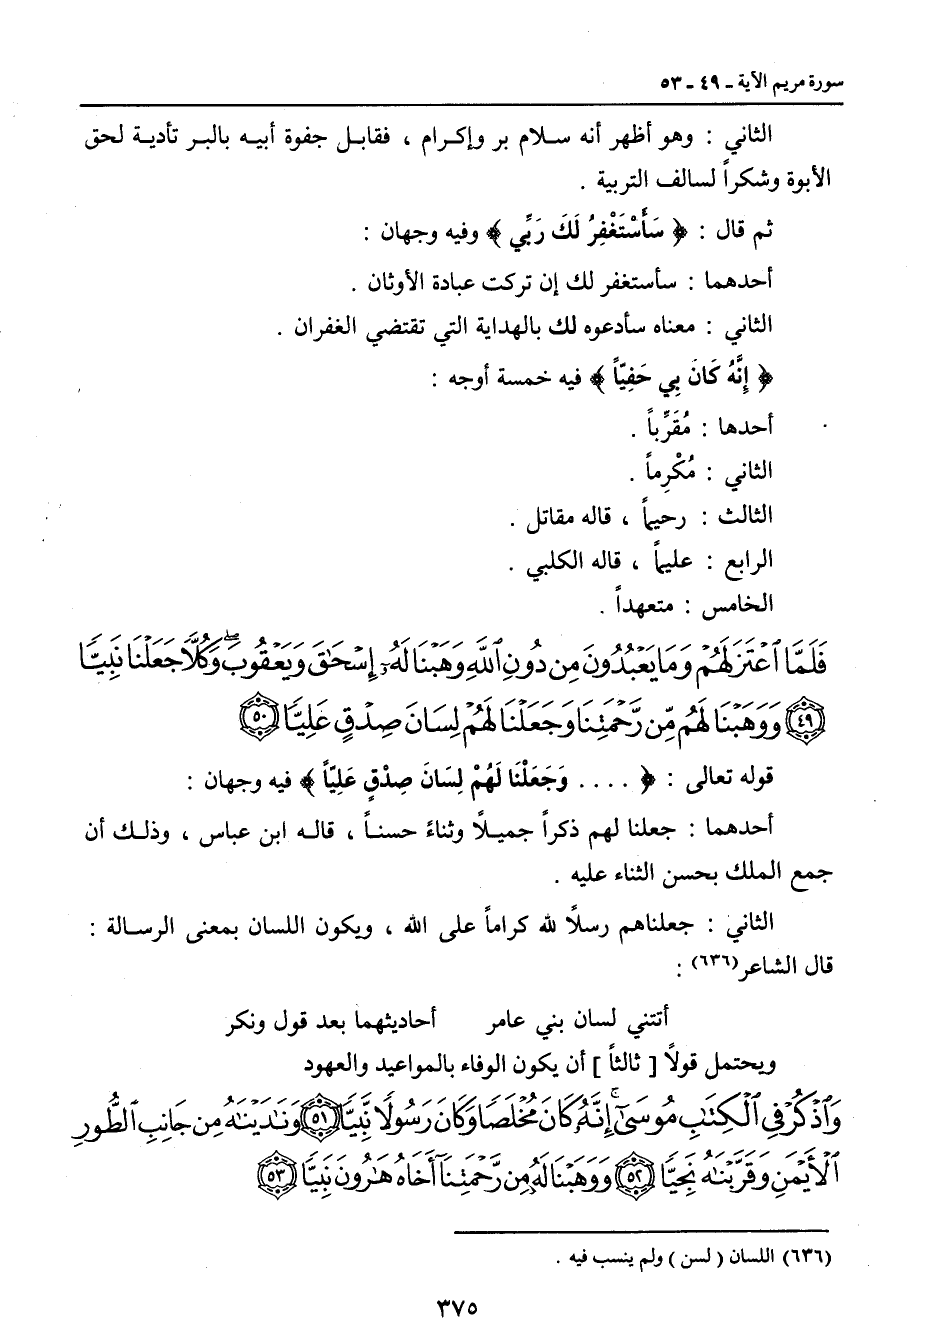 سورة مريم الآية ـ ٤٩ ـ ٥٣
الثاني : وهو أظهر أنه سلام بر وإكرام ، فقابل جفوة أبيه بالبر تأدية لحق
الأبوة وشكراً لسالف التربية .
ثم قال : ﴿ سَأَسْتَغْفِرُ لَكَ رَبِّي ﴾ وفيه وجهان :
أحدهما : سأستغفر لك إن تركت عبادة الأوثان .
الثاني : معناه سأدعوه لك بالهداية التي تقتضي الغفران .
﴿ إِنَّهُ كَانَ بِي حَفِيّاً ﴾ فيه خمسة أوجه :
أحدها : مُقَرِّباً .
الثاني : مُكْرِماً .
الثالث : رحيماً ، قاله مقاتل .
الرابع : عليماً ، قاله الكلبي .
الخامس : متعهداً .
فَلَمَّا ٱعْتَزَلَهُمْ وَمَا يَعْبُدُونَ مِن دُونِ ٱللَّهِ وَهَبْنَا لَهُۥٓ إِسْحَٰقَ وَيَعْقُوبَ ۖ وَكُلًّا جَعَلْنَا نَبِيًّا
﴿٤٩﴾ وَوَهَبْنَا لَهُم مِّن رَّحْمَتِنَا وَجَعَلْنَا لَهُمْ لِسَانَ صِدْقٍ عَلِيًّا ﴿٥٠﴾
قوله تعالى : ﴿ .... وَجَعَلْنَا لَهُمْ لِسَانَ صِدْقٍ عَلِيّاً ﴾ فيه وجهان :
أحدهما : جعلنا لهم ذكراً جميلاً وثناءً حسناً ، قاله ابن عباس ، وذلك أن
جمع الملك بحسن الثناء عليه .
الثاني : جعلناهم رسلاً لله كراماً على الله ، ويكون اللسان بمعنى الرسالة :
قال الشاعر(٦٣٦) :
أتتني لسان بني عامر أحاديثهما بعد قول ونكر
ويحتمل قولاً [ ثالثاً ] أن يكون الوفاء بالمواعيد والعهود
وَٱذْكُرْ فِي ٱلْكِتَٰبِ مُوسَىٰٓ ۚ إِنَّهُۥ كَانَ مُخْلَصًا وَكَانَ رَسُولًا نَّبِيًّا ﴿٥١﴾ وَنَٰدَيْنَٰهُ مِن جَانِبِ ٱلطُّورِ
ٱلْأَيْمَنِ وَقَرَّبْنَٰهُ نَجِيًّا ﴿٥٢﴾ وَوَهَبْنَا لَهُۥ مِن رَّحْمَتِنَآ أَخَاهُ هَٰرُونَ نَبِيًّا ﴿٥٣﴾
(٦٣٦) اللسان ( لسن ) ولم ينسب فيه .
٣٧٥